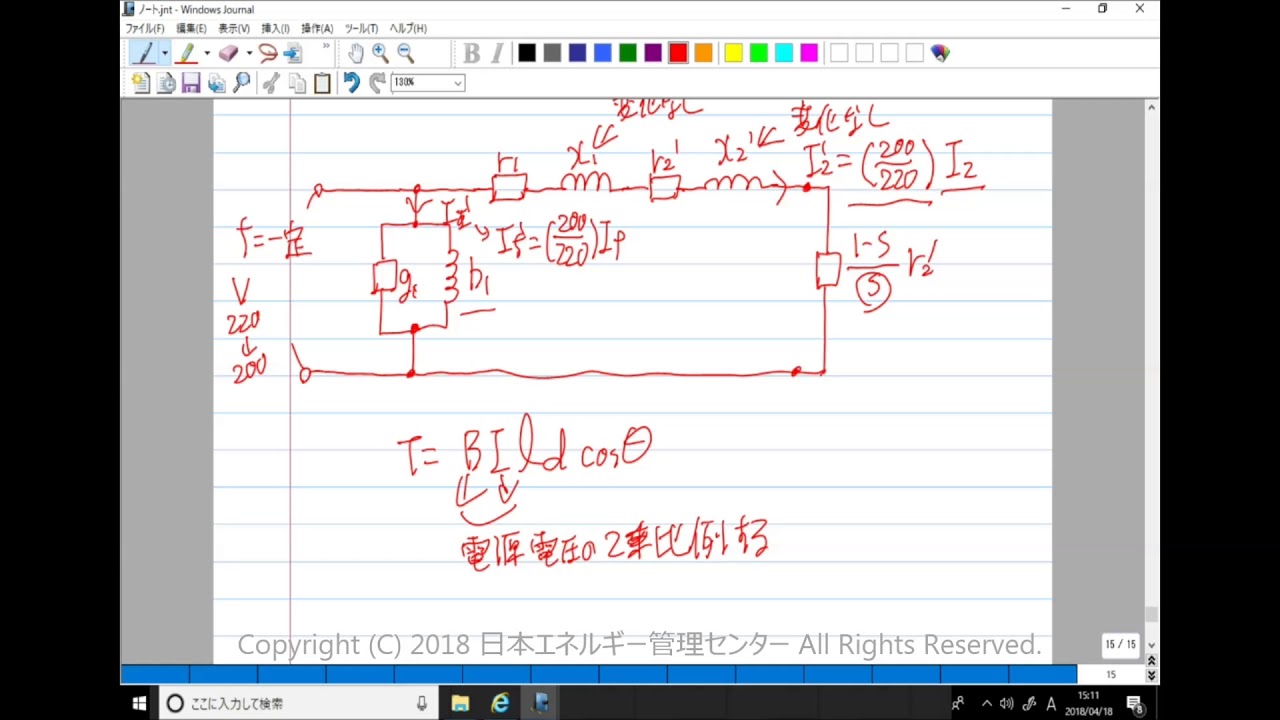 ノート.jnt - Windows Journal
ファイル(F) 編集(E) 表示(V) 挿入(I) 操作(A) ツール(T) ヘルプ(H)
130%
変化なし
変化なし
r1 x1 r2' x2' I2' = (200/220) I2
f=一定
If' = (200/220) If
g1 b1
1-S/S r2'
V
220
↓
200
T = BIld cosθ
電源電圧の2乗比例する
Copyright (C) 2018 日本エネルギー管理センター All Rights Reserved.
15 / 15
15
ここに入力して検索
A
15:11
2018/04/18
8